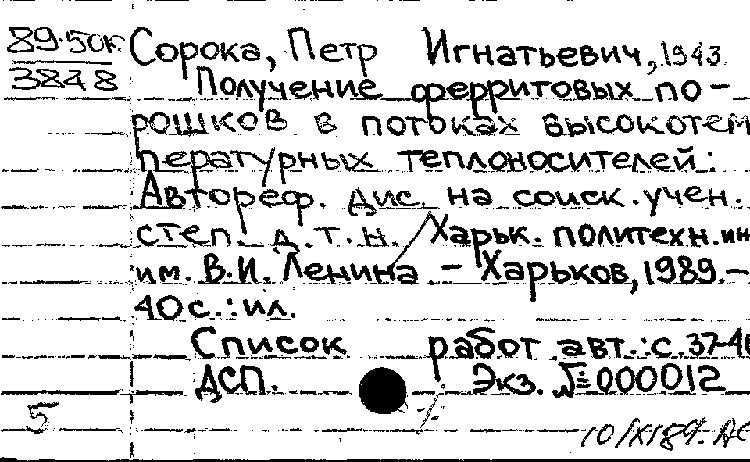 89-50к
3848
Сорока, Петр Игнатьевич, 1943
Получение ферритовых по-
рошков в потоках высокотем
пературных теплоносителей:
Автореф. дис. на соиск. учен.
степ. д.т.н. / Харьк. политехн. ин
им. В.И. Ленина - Харьков, 1989.-
40с.: ил.
Список работ авт.: с. 37-40
ДСП. Экз. № 000012
5